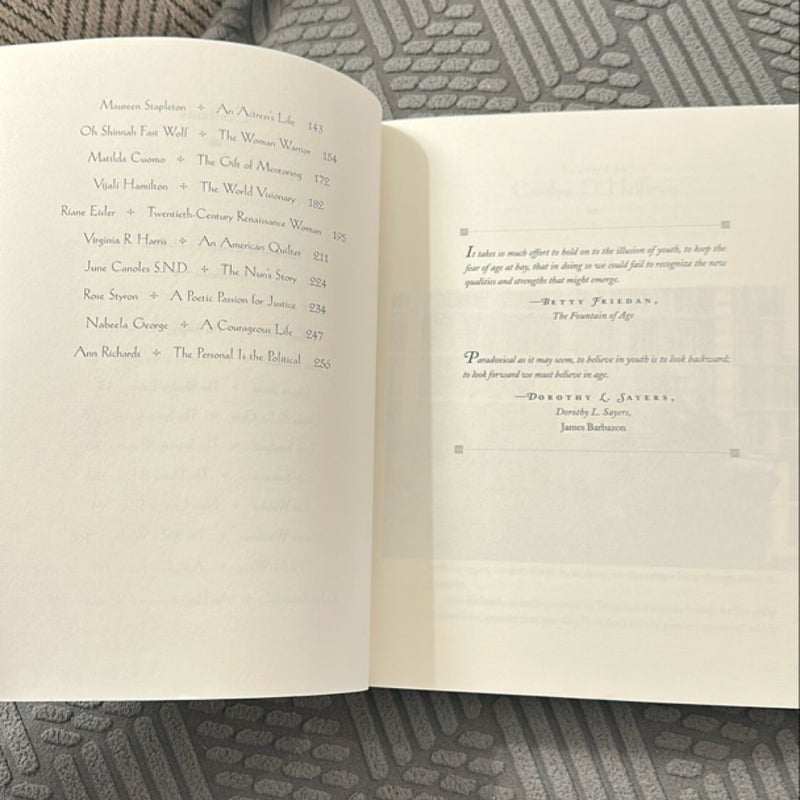 Maureen Stapleton ✣ An Actress's Life 143
Oh Shinnah Fast Wolf ✣ The Woman Warrior 154
Matilda Cuomo ✣ The Gift of Mentoring 172
Vijali Hamilton ✣ The World Visionary 182
Riane Eisler ✣ Twentieth-Century Renaissance Woman 195
Virginia R. Harris ✣ An American Quilter 211
June Canoles S.N.D. ✣ The Nun's Story 224
Rose Styron ✣ A Poetic Passion for Justice 234
Nabeela George ✣ A Courageous Life 247
Ann Richards ✣ The Personal Is the Political 256
It takes so much effort to hold on to the illusion of youth, to keep the
fear of age at bay, that in doing so we could fail to recognize the new
qualities and strengths that might emerge.
—BETTY FRIEDAN,
The Fountain of Age
Paradoxical as it may seem, to believe in youth is to look backward;
to look forward we must believe in age.
—DOROTHY L. SAYERS,
Dorothy L. Sayers,
James Barbazon